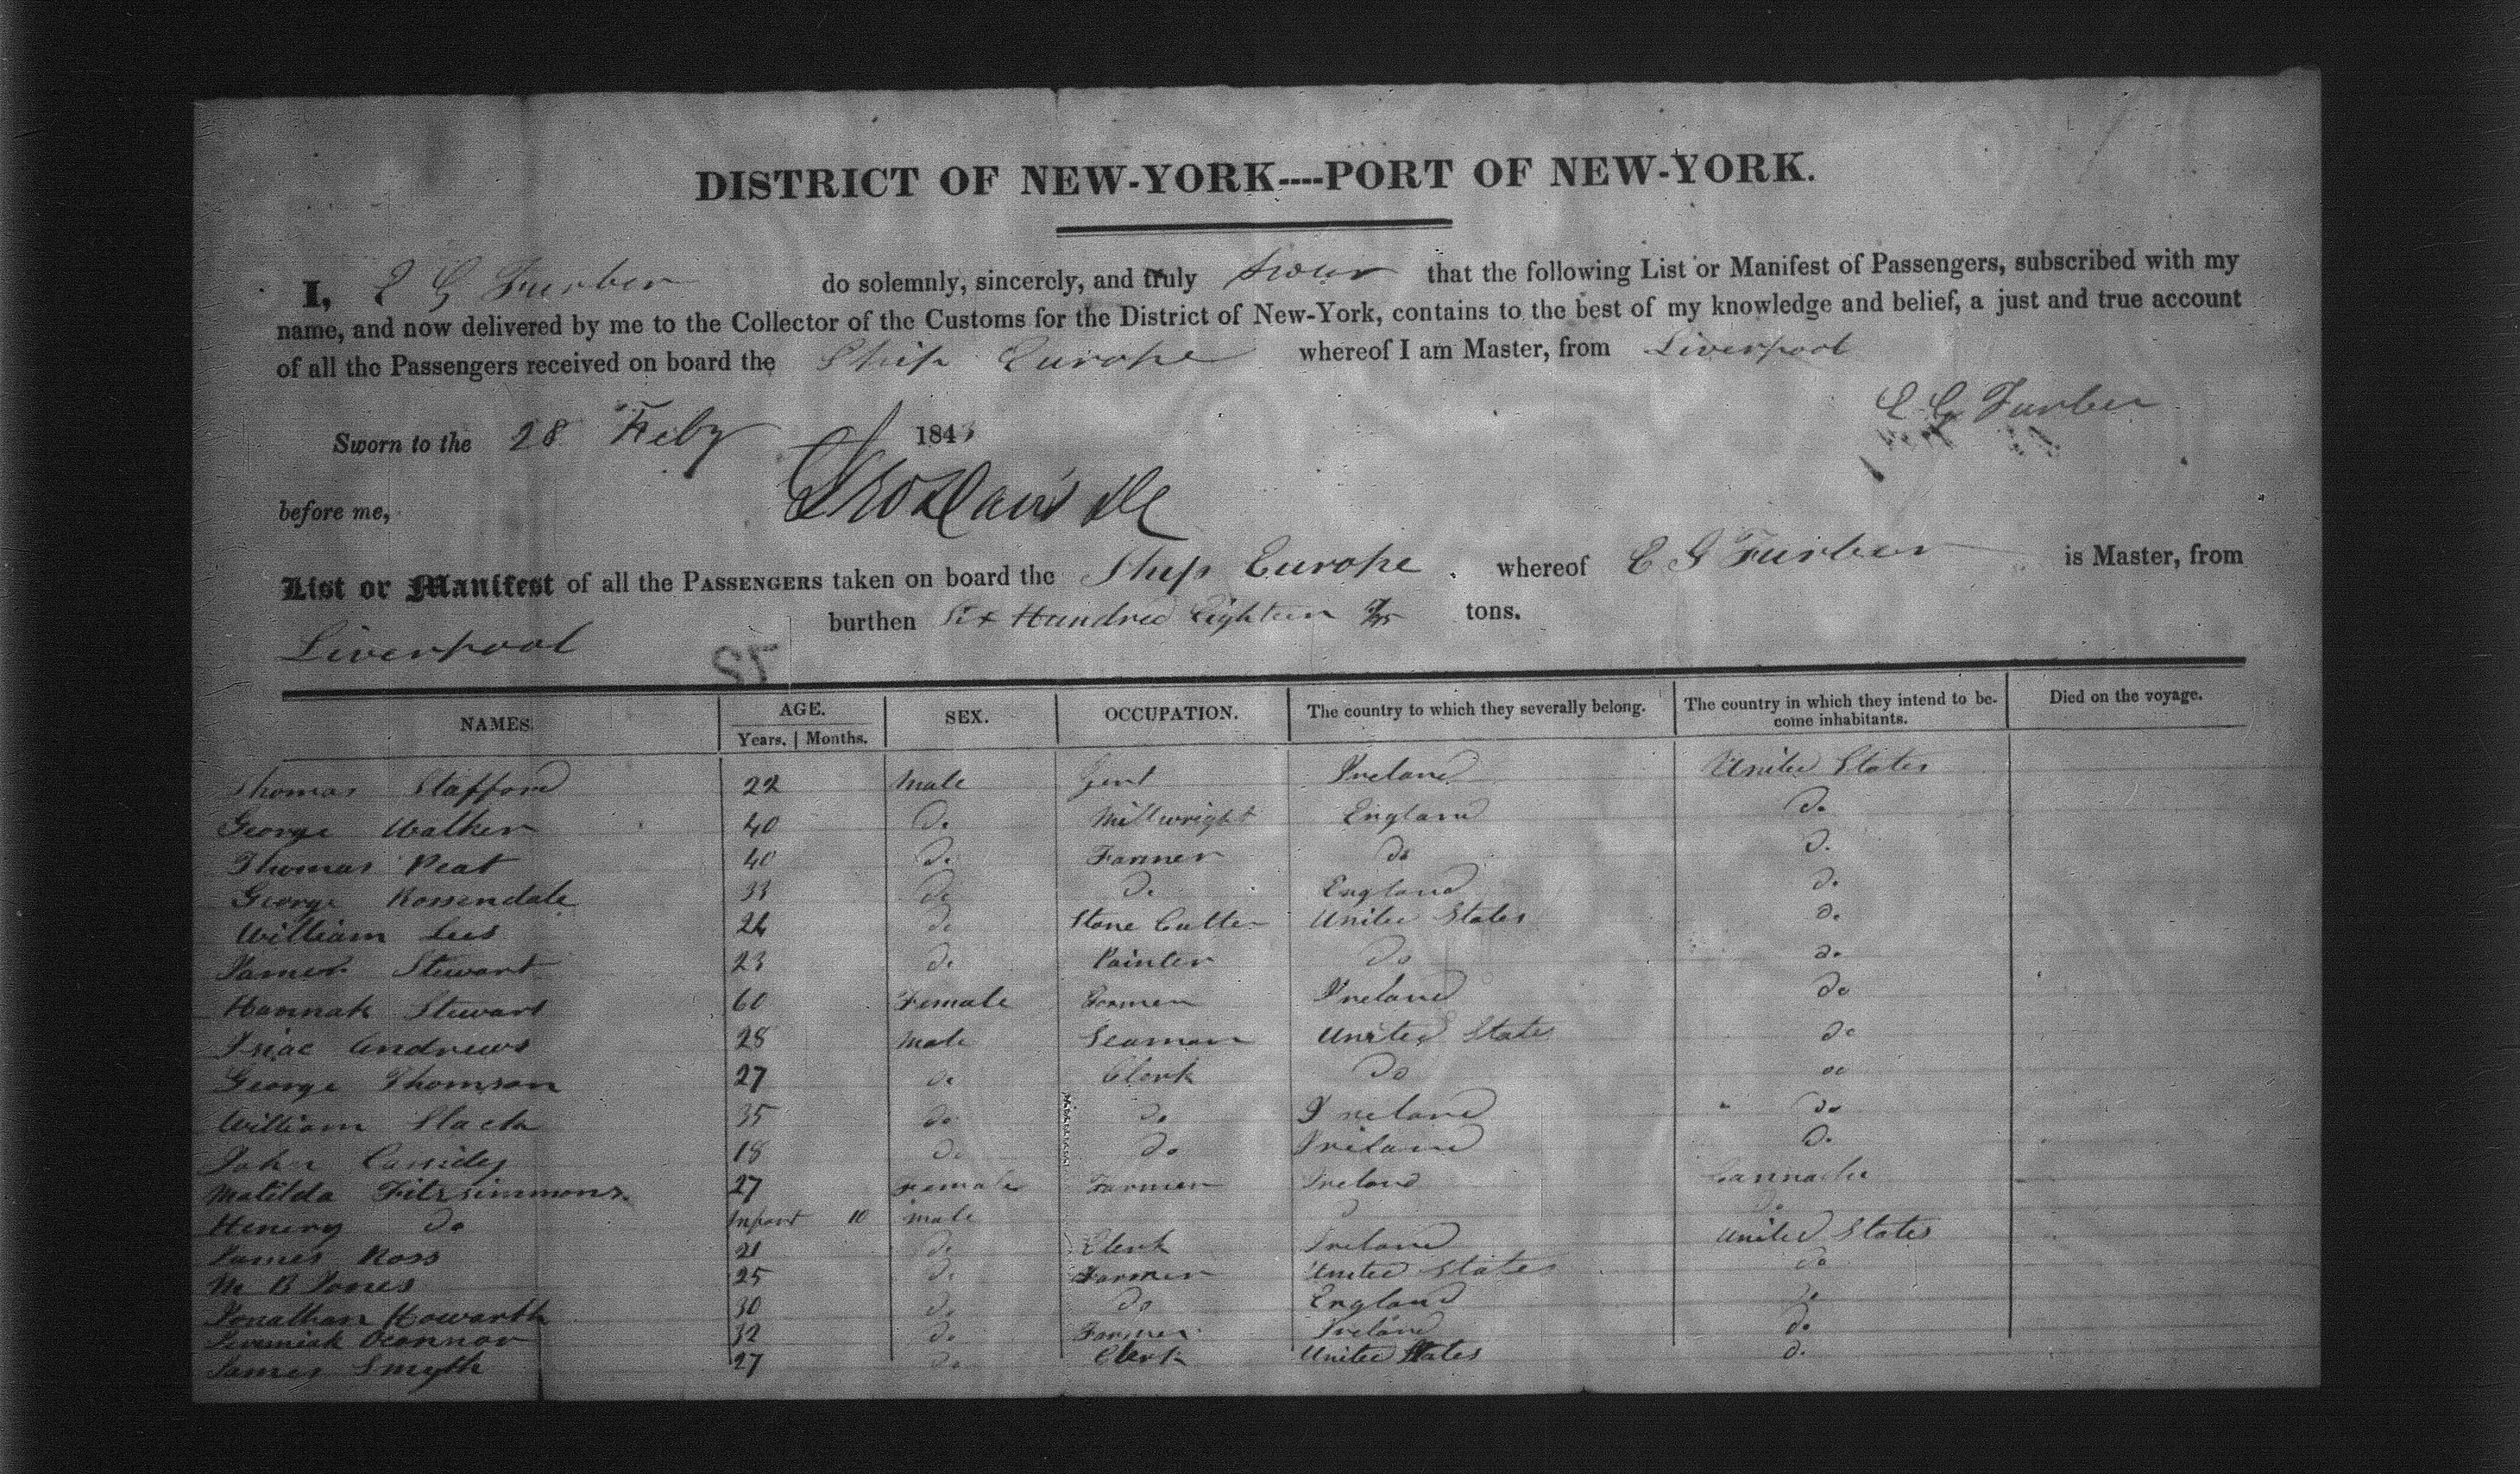 DISTRICT OF NEW-YORK----PORT OF NEW-YORK.
I, E G Furber do solemnly, sincerely, and truly swear that the following List or Manifest of Passengers, subscribed with my
name, and now delivered by me to the Collector of the Customs for the District of New-York, contains to the best of my knowledge and belief, a just and true account
of all the Passengers received on board the Ship Europe whereof I am Master, from Liverpool
E G Furber
Sworn to the 28 Feby 1843
before me,
List or Manifest of all the PASSENGERS taken on board the Ship Europe whereof E G Furber is Master, from
Liverpool burthen Six Hundred Eighteen tons.
NAMES. AGE. SEX. OCCUPATION. The country to which they severally belong. The country in which they intend to be- come inhabitants. Died on the voyage.
Years. Months.
Thomas Stafford 22 Male Gent Ireland United States
George Walker 40 Do Millwright England Do
Thomas Peat 40 Do Farmer Do Do
George Rossendale 33 Do Do England Do
William Lees 24 Do Stone Cutter United States Do
James Stewart 23 Do Painter Do Do
Hannah Stewart 60 Female Farmer Ireland Do
Isiac Andrews 28 Male Seaman United States Do
George Thomson 27 Do Clerk Do Do
William Slack 35 Do Do Ireland Do
John Cassidy 18 Do Do Ireland Do
Matilda Fitzsimmons 27 Female Farmer Ireland Cannada
Henery Do Infant 10 male Do
James Ross 21 Do Clerk Ireland United States
M B Jones 25 Do Farmer United States Do
Jonathan Howarth 30 Do Do England Do
Jeremiah Oconnor 32 Do Farmer Ireland Do
James Smyth 27 Do Clerk United States Do